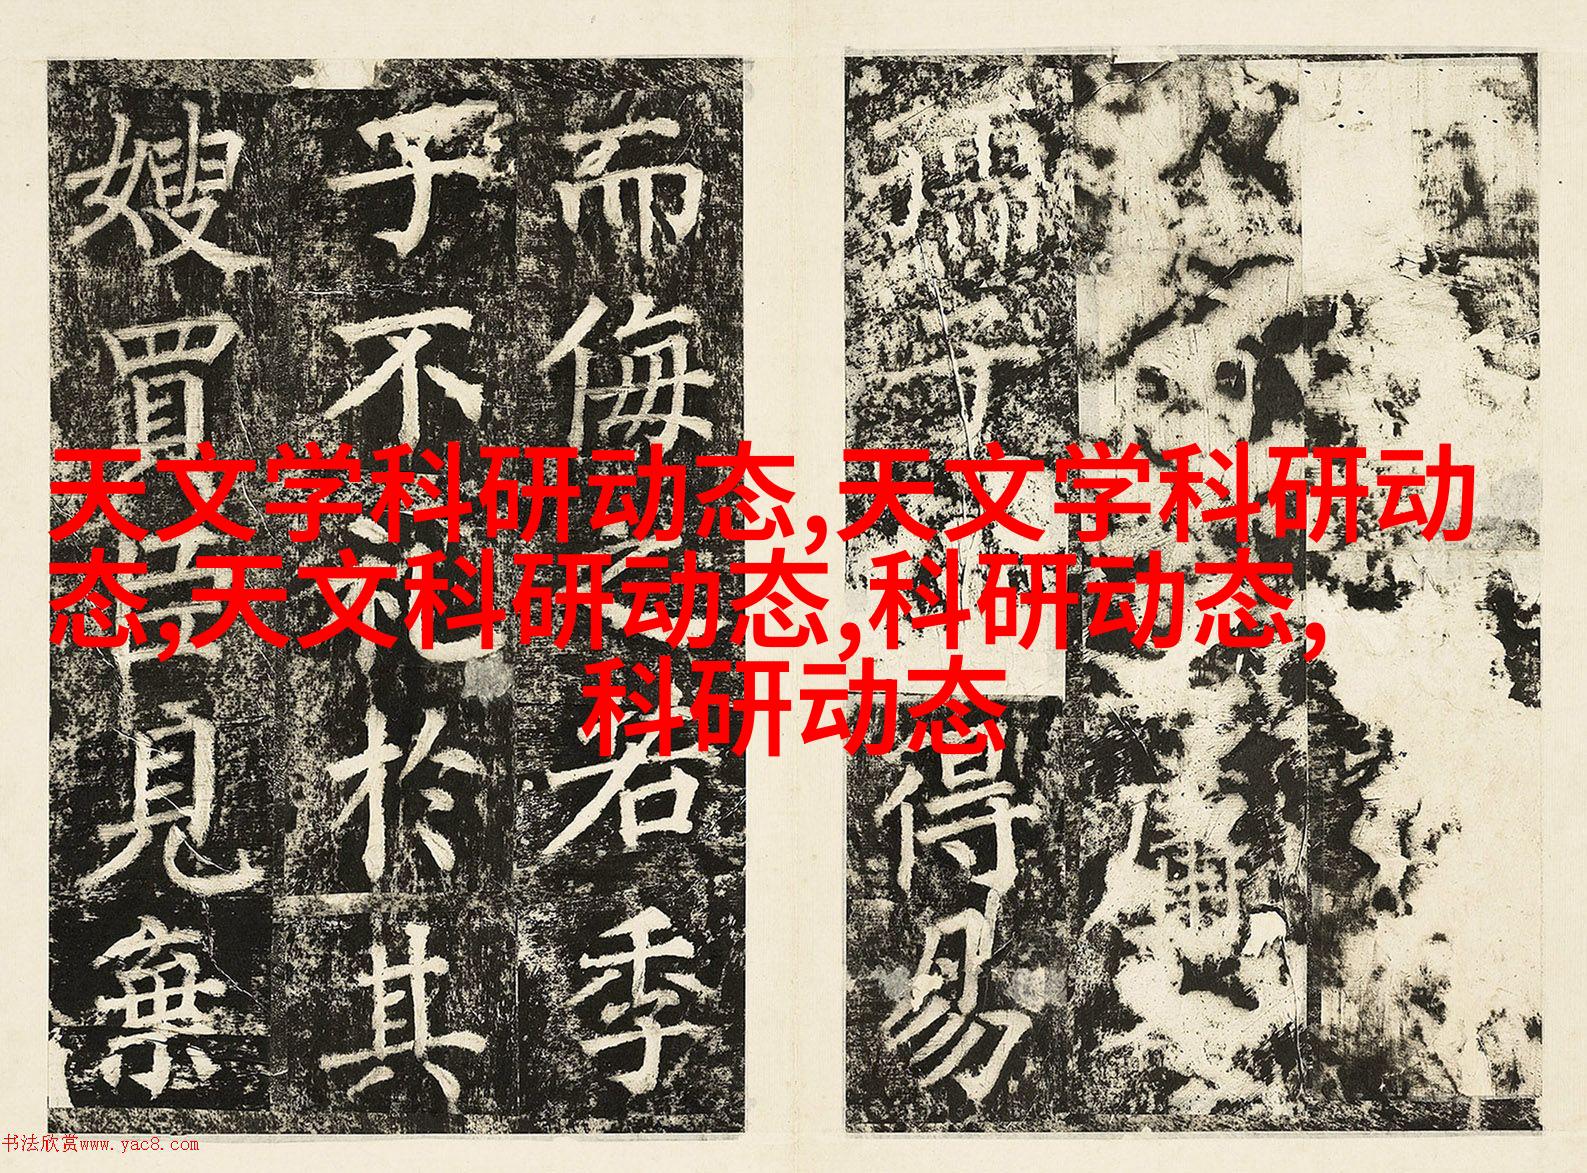 天文学科研动态,天文学科研动
态,天文科研动态,科研动态,
科研动态
得易
而侮若季
子不於其
嫂買見棄
书法欣赏www.yac8.com